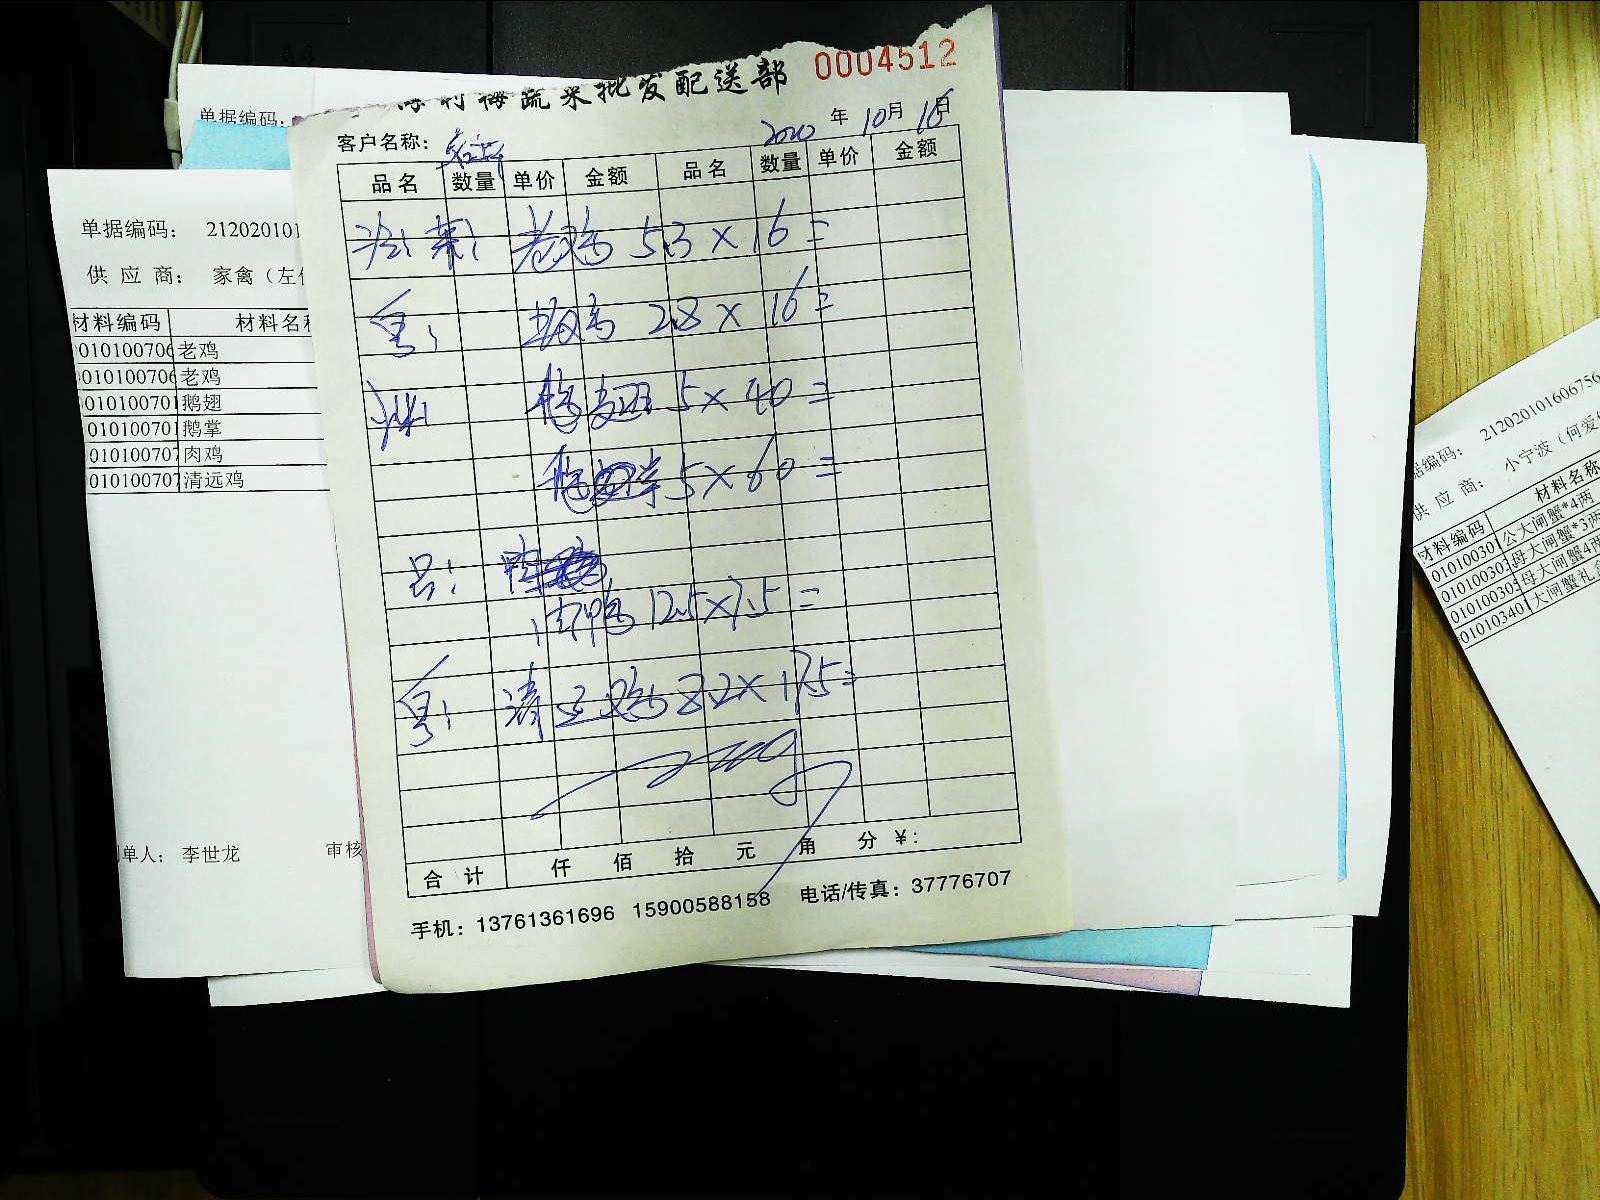 蔬菜批发配送部 0004512
客户名称： 2020 年 10 月 16 日
品名 数量 单价 金额 品名 数量 单价 金额
冷菜: 老鸡 5.3 × 16 =
粤: 2.8 × 16 =
鹅翅 5 × 40 =
鹅掌 5 × 60 =
肉鸭 12.5 × 7.5 =
粤: 清远鸡 8.2 × 17.5 =
合计 仟 佰 拾 元 角 分 ¥:
手机：13761361696 15900588158 电话/传真：37776707
单据编码:
单据编码： 212020101
供 应 商： 家禽（左
材料编码 材料名称
010100706 老鸡
010100706 老鸡
010100701 鹅翅
010100701 鹅掌
010100707 肉鸡
010100707 清远鸡
单人： 李世龙 审核
据编码： 212020101606756
供 应 商： 小宁波（何爱
材料编码 材料名称
01010030 公大闸蟹*4两
01010030 母大闸蟹*3两
01010030 母大闸蟹4两
01010340 大闸蟹礼盒